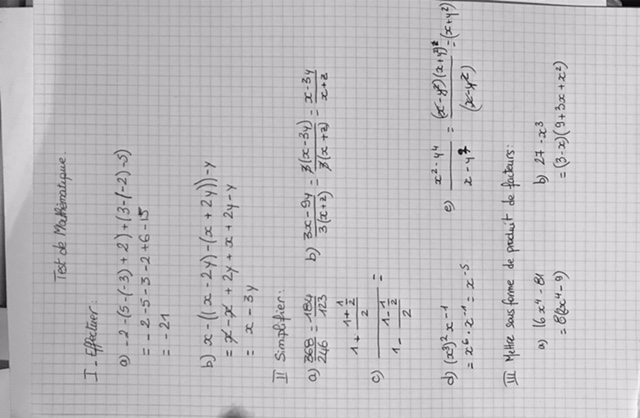 Test de Mathématique.
I - Effectuer:
a) -2-(5-(-3)+2)+(3-(-2)-5)
= -2-5-3-2+6-15
= -21
b) x-((x-2y)-(x+2y))-y
= x-x+2y+x+2y-y
= x-3y
II Simplifier:
a) 368/246 = 184/123
b) (3x-9y)/(3(x+2)) = 3(x-3y)/(3(x+2)) = (x-3y)/(x+2)
c) (1+(1+1/2)/2)/(1-(1-1/2)/2) =
d) (x³)²x⁻¹
= x⁶·x⁻¹ = x⁻⁵
e) (x²-y⁴)/(x-y²) = (x-y²)(x+y²)/(x-y²) = (x+y²)
III Mettre sous forme de produit de facteurs:
a) 16x⁴-81
= 8(2x⁴-9)
b) 27-x³
= (3-x)(9+3x+x²)